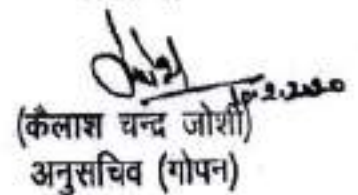 (कैलाश चन्द्र जोशी)
अनुसचिव (गोपन)